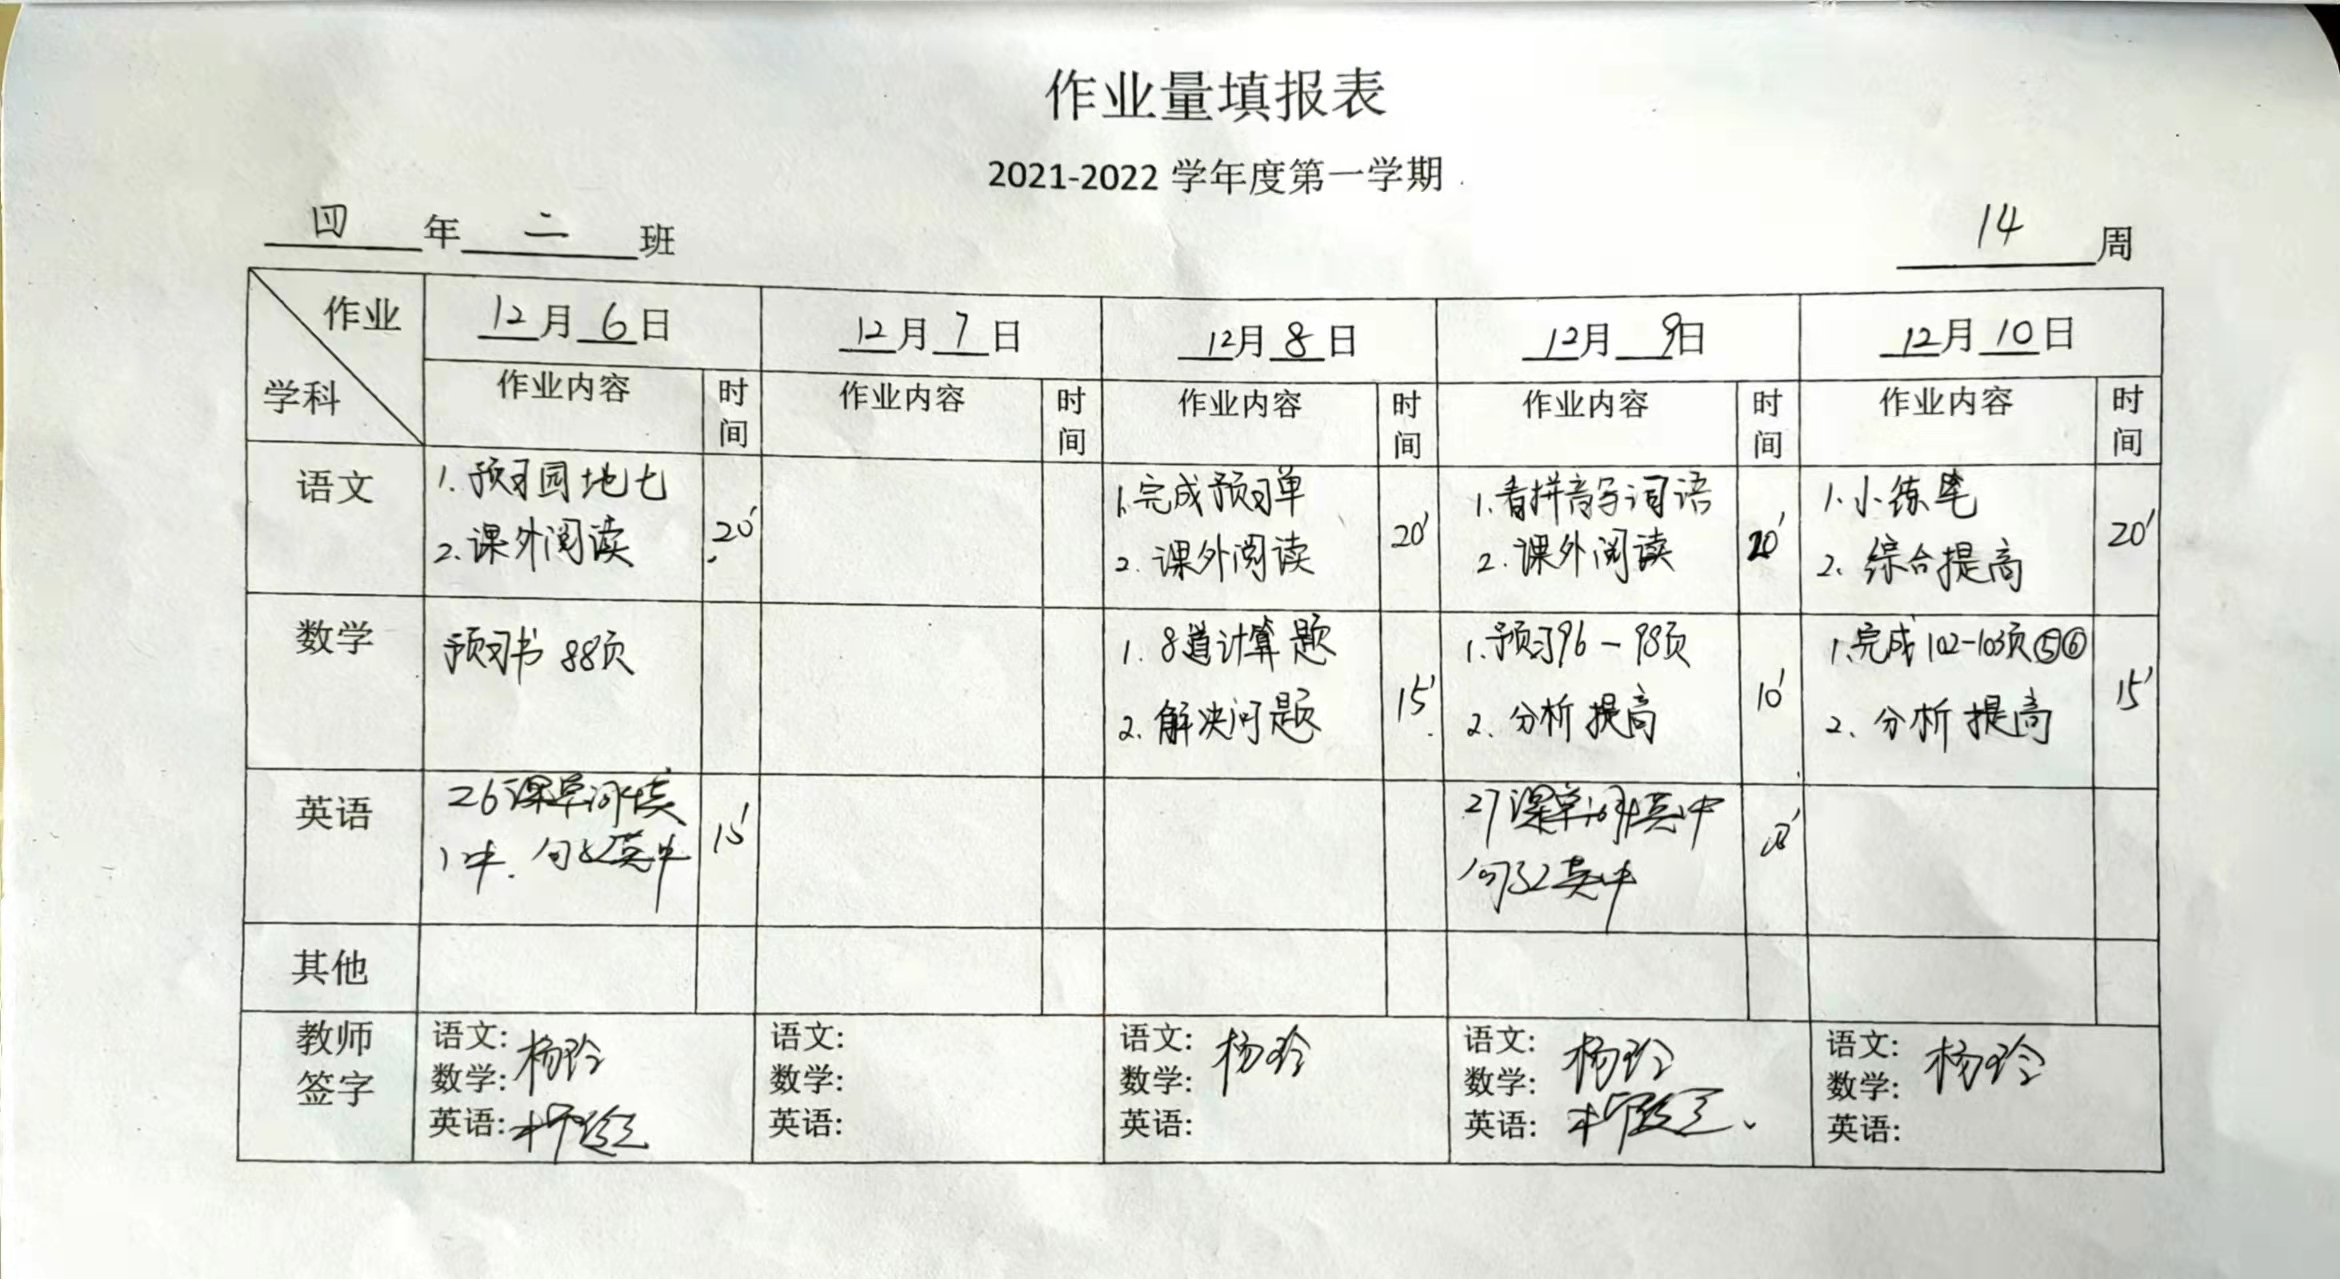 作业量填报表
2021-2022 学年度第一学期
四 年 二 班 14 周
作业 12月 6日 12月 7日 12月 8日 12月 9日 12月 10日
学科 作业内容 时间 作业内容 时间 作业内容 时间 作业内容 时间 作业内容 时间
语文 1.预习园地七 1.完成预习单 1.看拼音写词语 1.小练笔
2.课外阅读 20′ 2.课外阅读 20′ 2.课外阅读 20′ 2.综合提高 20′
数学 预习书88页 1.8道计算题 1.预习96-98页 1.完成102-103页⑤⑥
2.解决问题 15′ 2.分析提高 10′ 2.分析提高 15′
英语 26课单词4英 27课单词4英1中
1中. 句子2英1中 15′ 句子2英1中
其他
教师 语文: 杨玲 语文: 语文: 杨玲 语文: 杨玲 语文: 杨玲
签字 数学: 数学: 数学: 数学: 数学:
英语: 英语: 英语: 英语: 英语: